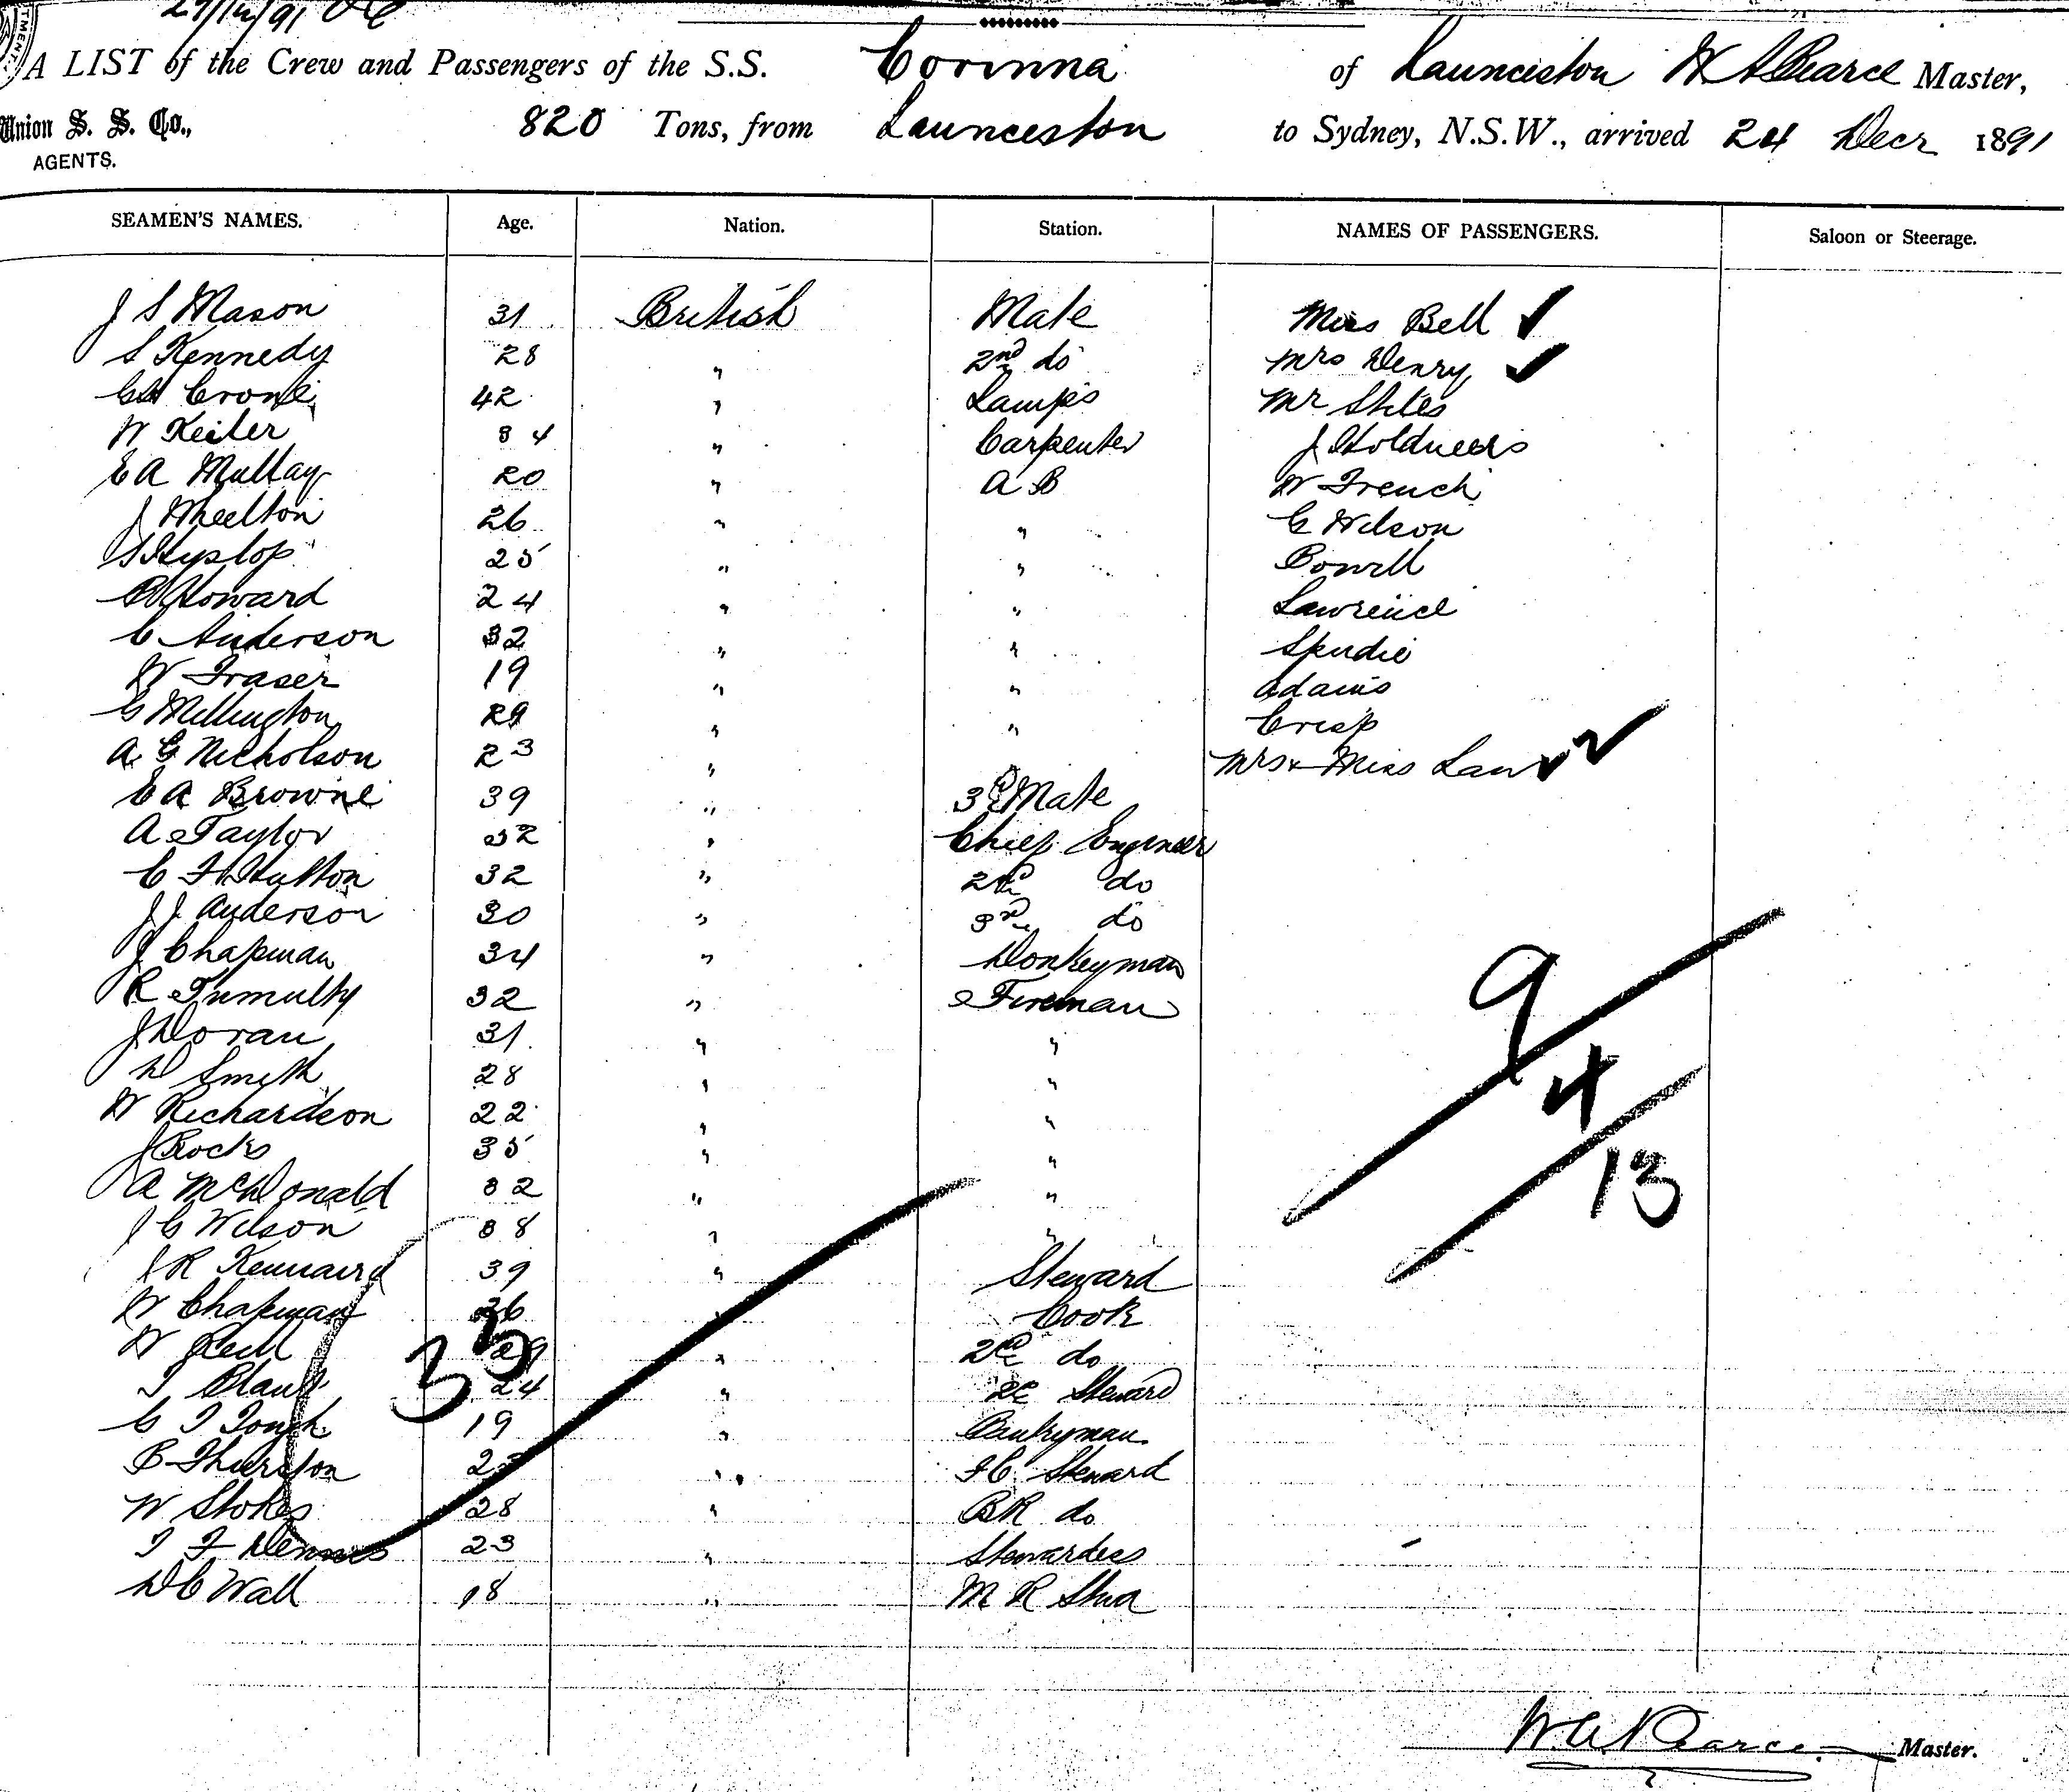 29/12/91
A LIST of the Crew and Passengers of the S.S. Corinna of Launceston W A Pearce Master,
Union S. S. Co., AGENTS. 820 Tons, from Launceston to Sydney, N.S.W., arrived 24 Decr 1891
SEAMEN'S NAMES. Age. Nation. Station. NAMES OF PASSENGERS. Saloon or Steerage.
J S Mason 31 British Mate Miss Bell ✓
S Kennedy 28 " 2nd do Mrs Henry ✓
42 " Lamps Mr Stiles
W Keiler 34 " Carpenter J
E A Mullay 20 " A B W French
J Wheelton 26 " " G Wilson
S Hyslop 25 " " Powell
Howard 24 " " Lawrence
C Anderson 32 " " Spudie
W Fraser 19 " " Adams
G Millington 29 " " Crisp
A G Nicholson 23 " Mrs & Miss Law ✓ 2
E A Browne 39 " 3rd Mate
A Taylor 32 " Chief Engineer
C F Hutton 32 " 2nd do
J J Anderson 30 " 3rd do
J Chapman 34 " Donkeyman
R Tumulty 32 " Fireman
J Doran 31 " "
D Smyth 28 " "
W Richardson 22 " "
J Rocks 35 " "
A McDonald 32 " "
J G Wilson 38 " "
J R Kennaird 39 " Steward
W Chapman 36 " Cook
W 29 " 2nd do
T 24 " 2nd Steward
C T Tough 19 " Pantryman
B Thurston " F C Steward
W Stokes 28 " B R do
T F Dennis 23 " Stewardess
D C Wall 18 " M R Stwd
33
9
4
13
W. A. Pearce. Master.